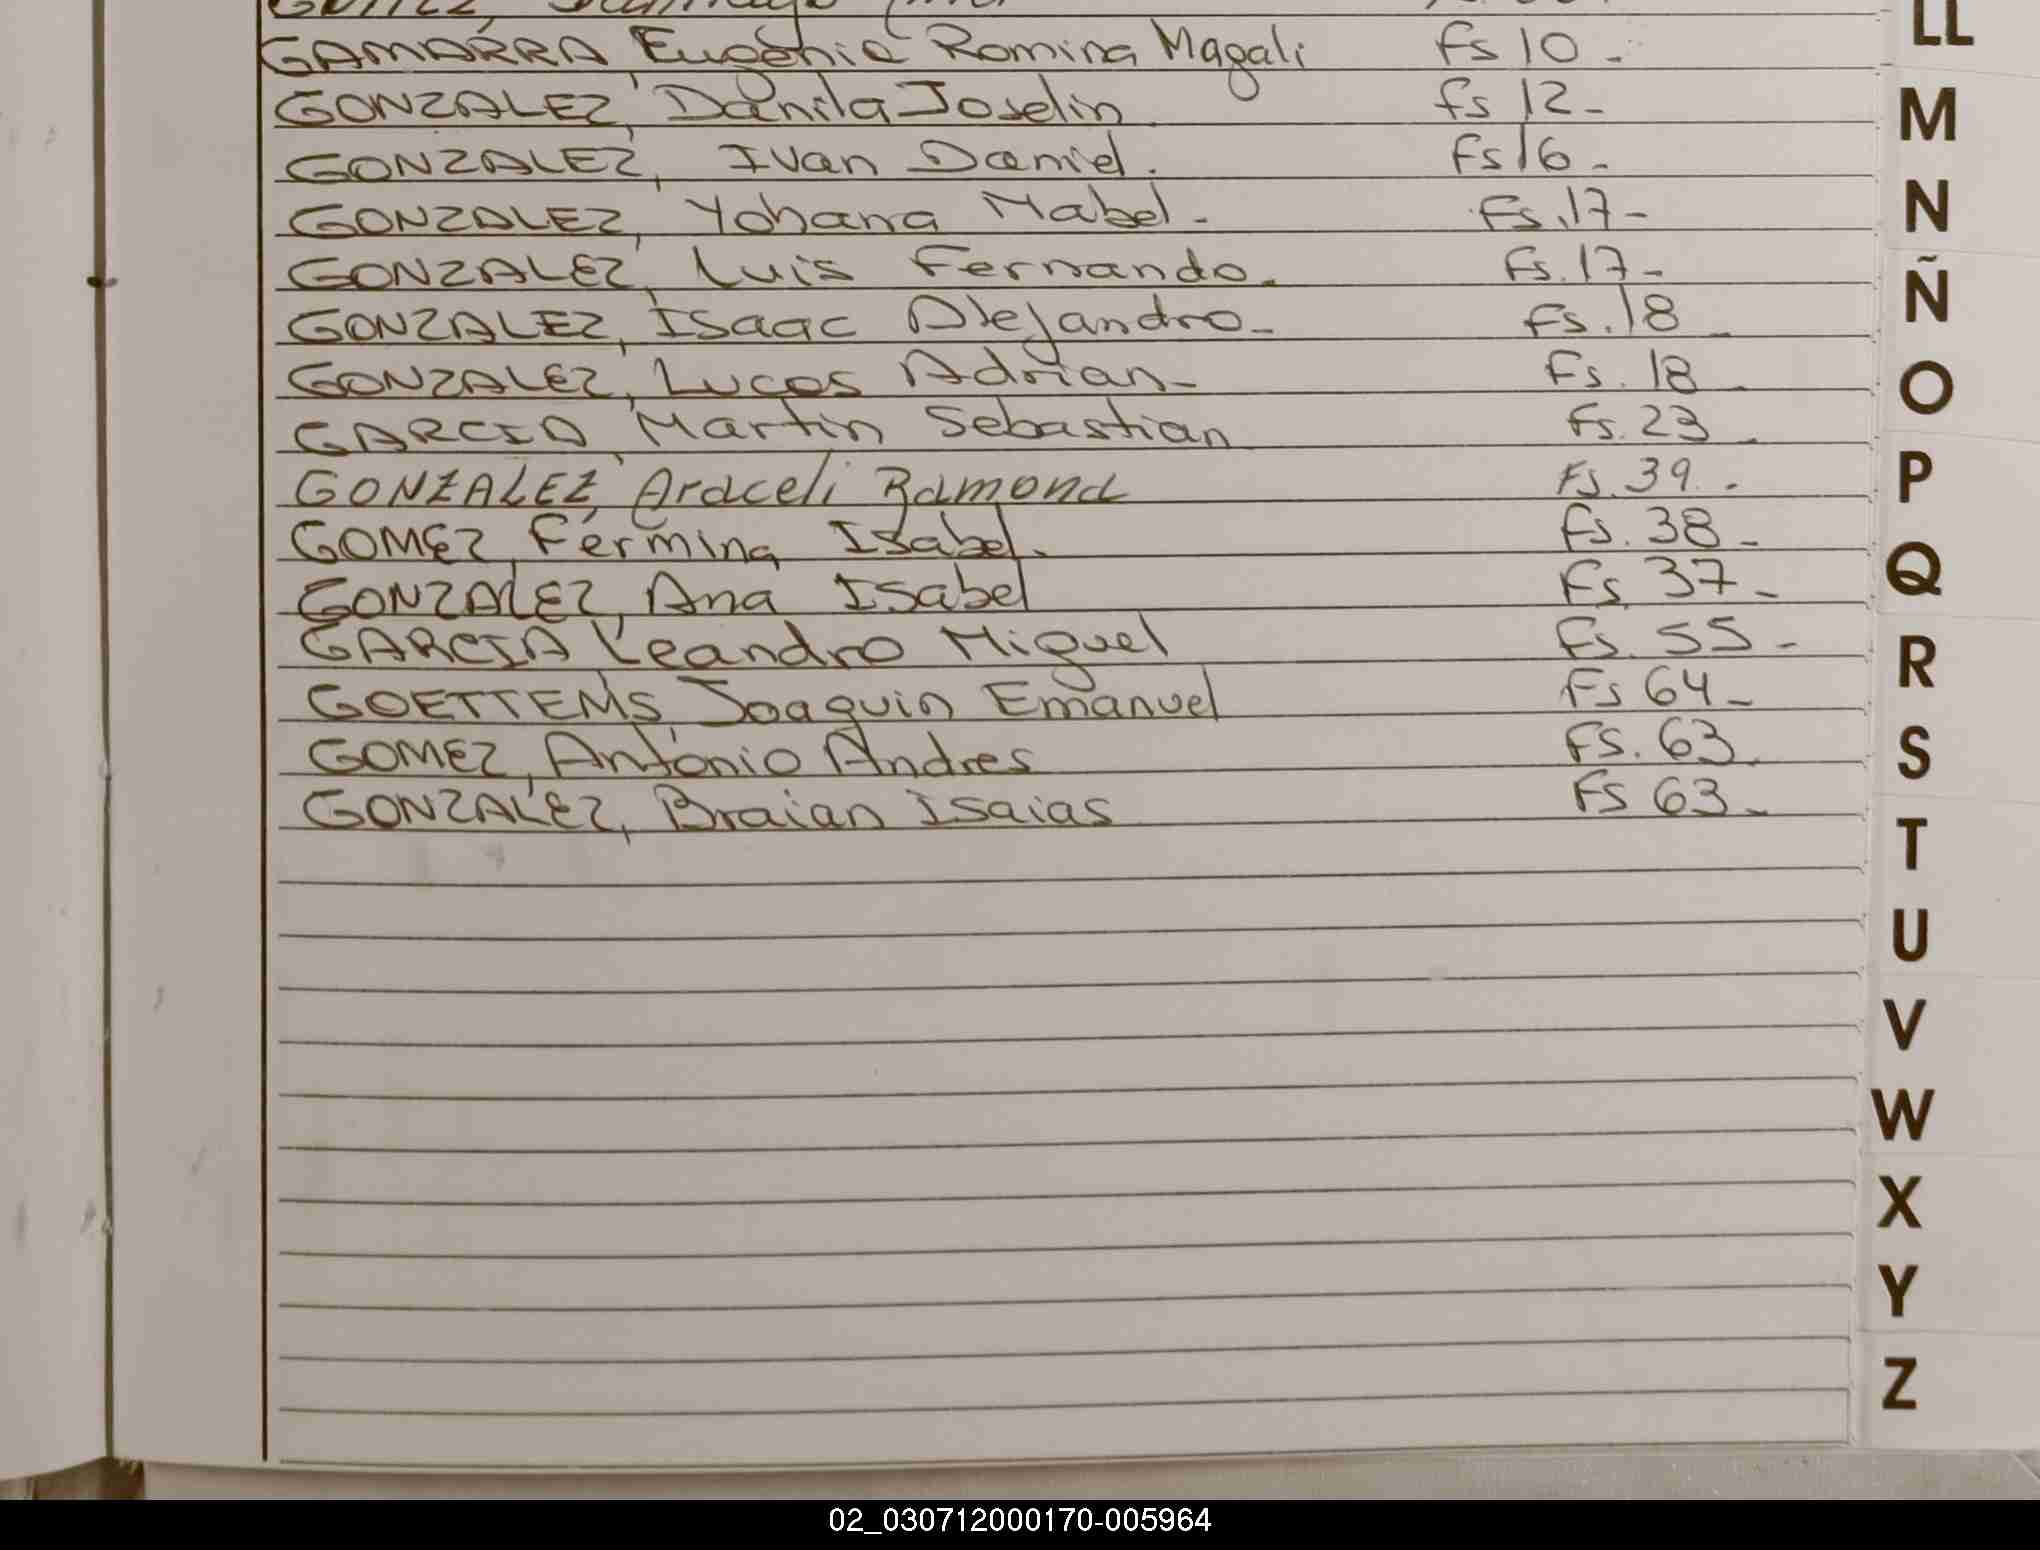 GAMARRA, Eugenia Romina Magali fs 10 -
GONZALEZ, Danila Joselin fs 12 -
GONZALEZ, Ivan Daniel. fs 16 -
GONZALEZ, Yohana Mabel - fs. 17 -
GONZALEZ, Luis Fernando - fs. 17 -
GONZALEZ, Isaac Alejandro - fs. 18 -
GONZALEZ, Lucas Adrian - fs. 18 -
GARCIA, Martin Sebastian fs. 23 -
GONZALEZ, Araceli Ramona fs. 39 -
GOMEZ, Fermina Isabel. fs. 38 -
GONZALEZ, Ana Isabel fs. 37 -
GARCIA, Leandro Miguel fs. 55 -
GOETTEMS, Joaquin Emanuel Fs 64 -
GOMEZ, Antonio Andres FS. 63 -
GONZALEZ, Braian Isaias FS 63 -
LL
M
N
Ñ
O
P
Q
R
S
T
U
V
W
X
Y
Z
02_030712000170-005964